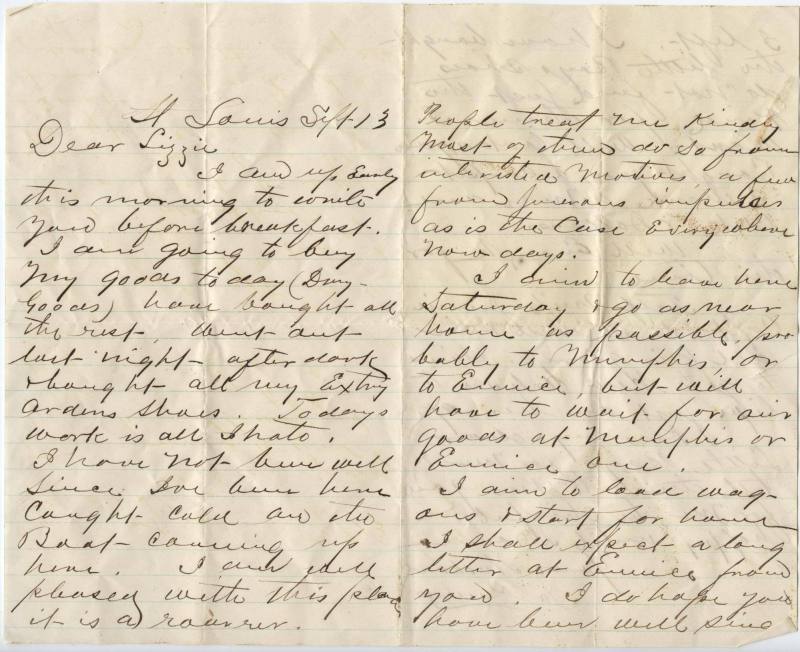 St Louis Sept 13
Dear Lizzie
I am up Early
this morning to write
you before breakfast.
I am going to buy
my goods to day (Dry-
Goods) have bought all
the rest, went out
last night after dark
& bought all my Extry
ordens shoes. Todays
work is all I hate.
I have not been well
Since I've been here
Caught cold on the
Boat comeing up
here. I am well
pleased with this place
it is a roarrer.
People treat me Kindly
Most of them do so from
interested motives, a few
from generous impulses
as is the Case Everywhere
now days.
I aim to leave here
Saturday & go as near
home as possible, pro
bably to Memphis, or
to Eunice, but will
have to wait for our
goods at Memphis or
Eunice one.
I aim to load wag-
ons & start for home
I shall expect a long
letter at Eunice from
you. I do hope you
have been well since